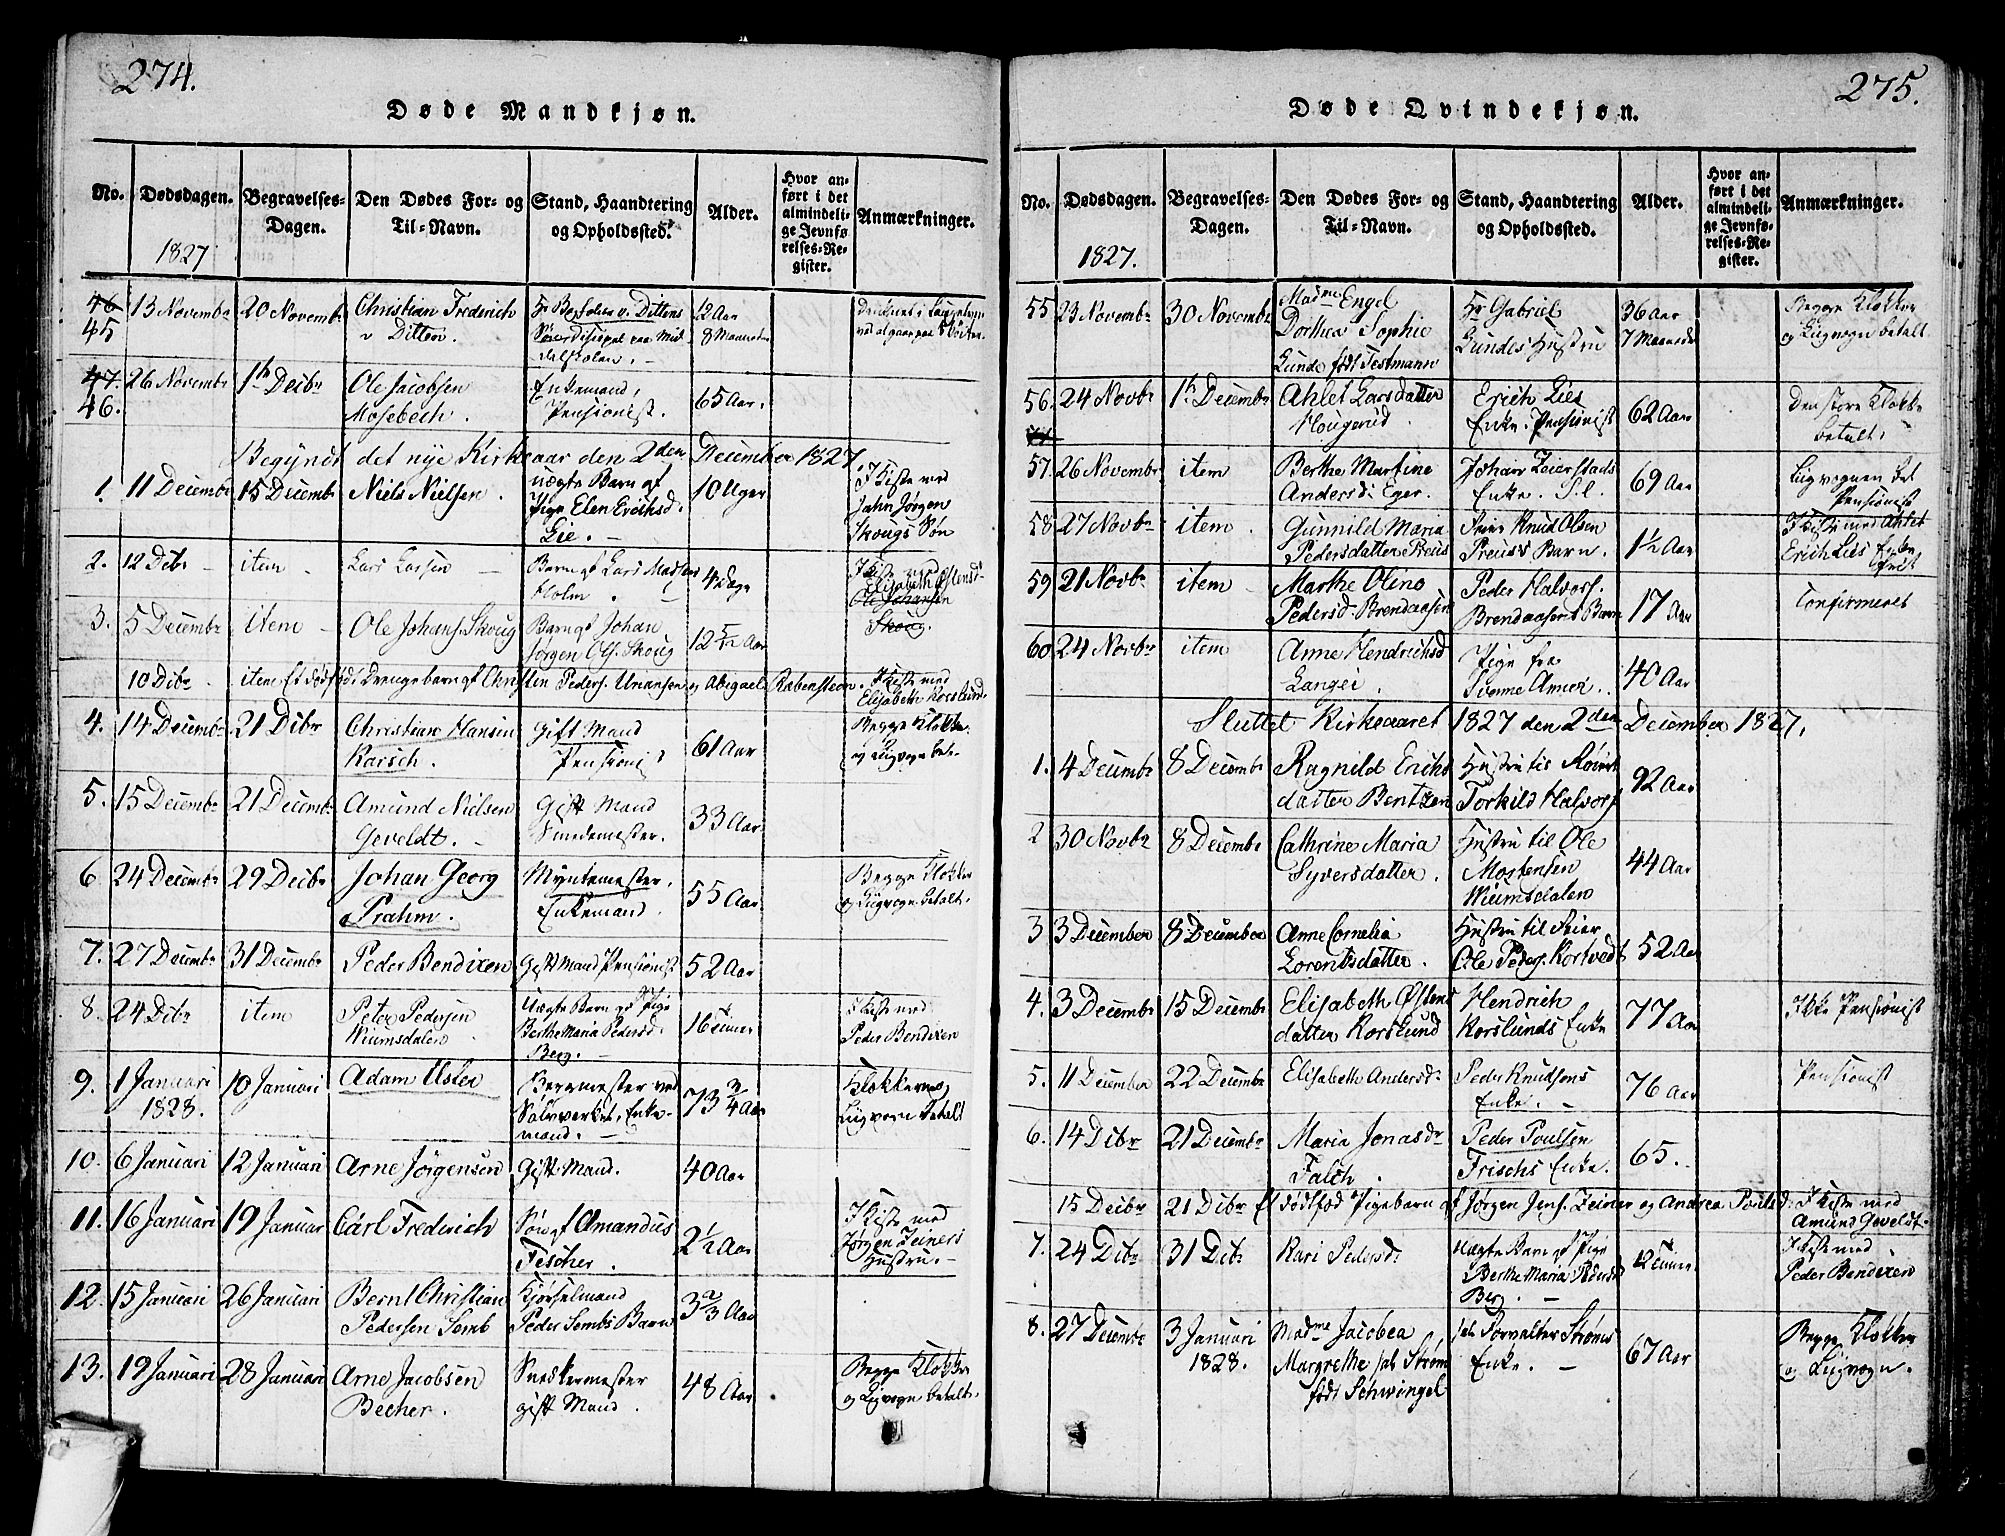 274.
Døde Mandkjøn.
No. Dødsdagen. Begravelses-Dagen. Den Dødes For- og Til-Navn. Stand, Haandtering og Opholdssted. Alder. Hvor anført i det almindelige Jevnførelses-Register. Anmærkninger.
1827
46 45 13 Novembr 20 Novembr Christian Frederich v Ditten. 12 Aar 8 Maaneder
47. 46. 26 Novembr 1te Decbr Ole Jacobsen Mosebech. Enkemand, Pensionist. 65 Aar.
Begyndt det nye Kirkeaar den 2den December 1827.
1. 11 Decembr 15 Decembr Niels Nielsen. uægte Barn af Pige Elen Erichsd. Lie. 10 Uger I Kiste med Jahn Jørgen Skougs Søn
2. 12 Decbr item Lars Larsen Barn af Lars Madsen Holm. 4 Dage I Kiste med Elisabeth Østensd. Ole Johansen Skoug.
3. 5 Decembr item Ole Johans. Skoug Barn af Johan Jørgen Ols. Skoug 12 5/12 Aar
10 Dcbr item Et dødfød Drengebarn af Christen Peders. Unansen og Abigael Rabensteen. I Kiste med Elisabeth Korslund.
4. 14 Decembr 21 Dcbr Christian Hansen Karsch. Gift Mand Pensionist 61 Aar Begge Klokker og Liigvogn bet.
5. 15 Decembr 21 Decembr Amund Nielsen Geveldt. Gift Mand Smedemester. 33 Aar
6. 24 Decembr 29 Decbr Johan Georg Prahm. Myntemester. Enkemand. 55 Aar Begge Klokker og Liigvogn betalt.
7. 27 Decembr 31 Decembr Peder Bendixen Gift Mand Pensionist 52 Aar
8. 24 Dcbr item Peter Pedersen Wiumsdalen Uægte Barn af Pige Berthe Maria Pedersd. Berg. 16 Timer I Kiste med Peder Bendixen
9. 1 Januari 1828. 10 Januari Adam Uster Bergmester ved Sølvverket, Enkemand. 73 3/4 Aar Klokkerne og Liigvogn betalt
10. 6 Januari 12 Januari Arne Jørgensen Gift Mand. 40 Aar
11. 16 Januari 19 Januar Carl Frederich Søn af Amandus Fischer. 2 1/2 Aar I Kiste med Jørgen Zeiners Hustru.
12. 15 Januari 26 Januari Bernt Christian Pedersen Semb Kjørselmand Peder Sembs Barn 3 2/3 Aar
13. 19 Januari 28 Januari Arne Jacobsen Becher. Snedkermester gift Mand. 48 Aar Begge Klokker og Liigvogn betalt.
275.
Døde Qvindekjøn.
No. Dødsdagen. Begravelses-Dagen. Den Dødes For- og Til-Navn. Stand, Haandtering og Opholdssted. Alder. Hvor anført i det almindelige Jevnførelses-Register. Anmærkninger.
1827.
55 23 Novembr 30 Novembr Madme Engel Dorthea Sophie Lunde født Testmann Hr Gabriel Lundes Hustru 36 Aar 7 Maaneder Begge Klokker og Liigvogn betalt
56. 24 Novbr 1te Decembr Ahlet Larsdatter Hougerud. Erich Lies Enke. Pensionist 62 Aar Den store Klokke betalt.
57. 26 Novembr item Berthe Martine Andersd. Eger. Johan Zeierstads Enke. 69 Aar Liigvognen bet Pensionist
58 27 Novbr item Gunnild Maria Pedersdatter Preus Feier Knud Olsen Preuss Barn. 1 1/2 Aar I Kiste med Ahlet Erich Lies Enke
59 21 Novbr item Marthe Olino Pedersd. Brendaasen Peder Halvors. Brendaasens Barn 17 Aar Confirmeret
60 24 Novbr item Anne Hendrichsd Langei. Pige fra 40 Aar
Sluttet Kirkeaaret 1827 den 2den December 1827.
1. 4 Decembr 8 Decembr Ragnild Erichsdatter Bentzen Hustru til Torkild Halvors 92 Aar
2 30 Novbr 8 Decembr Cathrine Maria Syversdatter. Hustru til Ole Mortensen Wiumsdalen 44 Aar
3 3 December 8 December Anne Cornelia Lorentsdatter. Hustru til Feier Ole Peders. Kortvedt 52 Aar
4. 3 Decembr 15 Decembr Elisabeth Østensdatter Korslund Hendrich Korslunds Enke 77 Aar Ikke Pensionist
5. 11 December 22 Decembr Elisabeth Andersdr Peder Knudsens Enke. 76 Aar Pensionist
6. 14 Dcbr 21 Decembr Maria Jonasdr Falch. Peder Poulsen Frischs Enke. 65.
15 Decbr 21 Dcbr Et dødfød Pigebarn af Jørgen Jens. Zeiner og Andrea Povelsd. I Kiste med Amund Geveldt.
7. 24 Dcbr 31 Dcbr Kari Pedersd. Uægte Barn af Pige Berthe Maria Pedersd Berg. 12 Timer. I Kiste med Peder Bendixen
8. 27 Decembr 3 Januari 1828. Madme Jacobea Margrethe sal. Strøm født Schwingel sal. Forvalter Strøms Enke. 67 Aar Begge Klokker og Liigvogn.